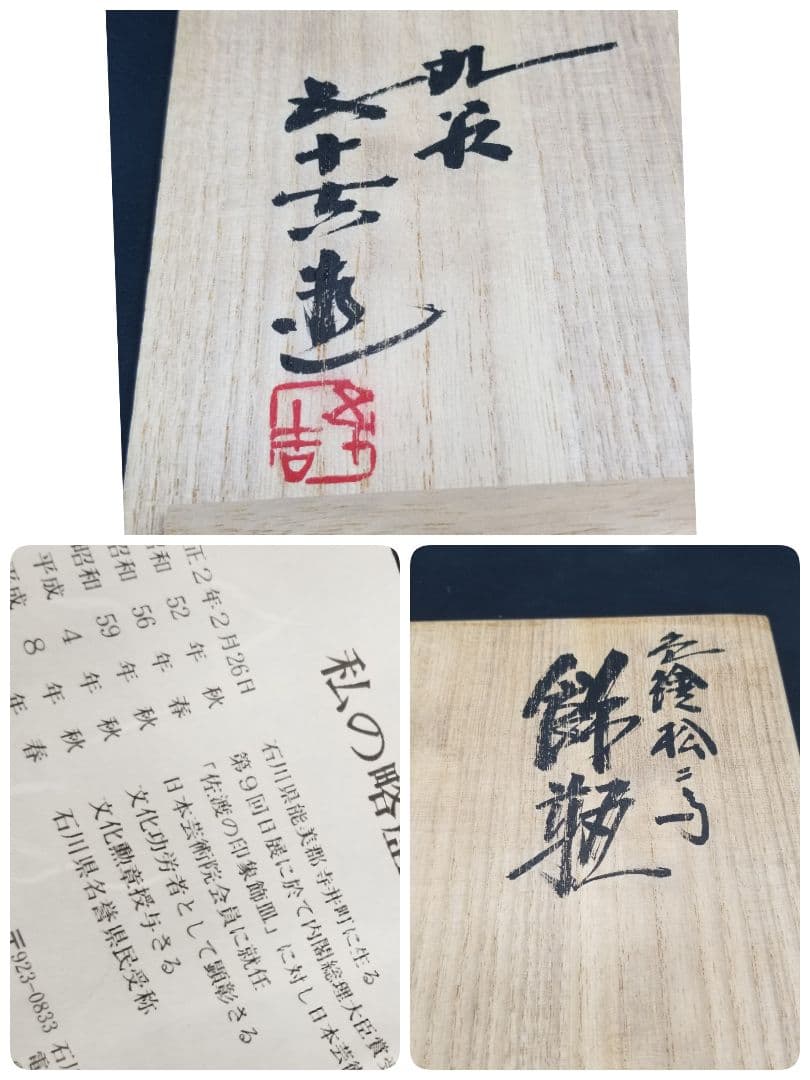 九谷
八十吉造
色絵松ニ鳥
飾瓶
私の略歴
正2年2月26日 石川県能美郡寺井町に生る
和52年秋 第9回日展に於て内閣総理大臣賞
和56年春 「佐渡の印象飾皿」に対し日本芸術
昭和59年秋 日本芸術院会員に就任
平成4年秋 文化功労者として顕彰さる
成8年秋 文化勲章授与さる
年春 石川県名誉県民受称
〒923-0833 石川
電